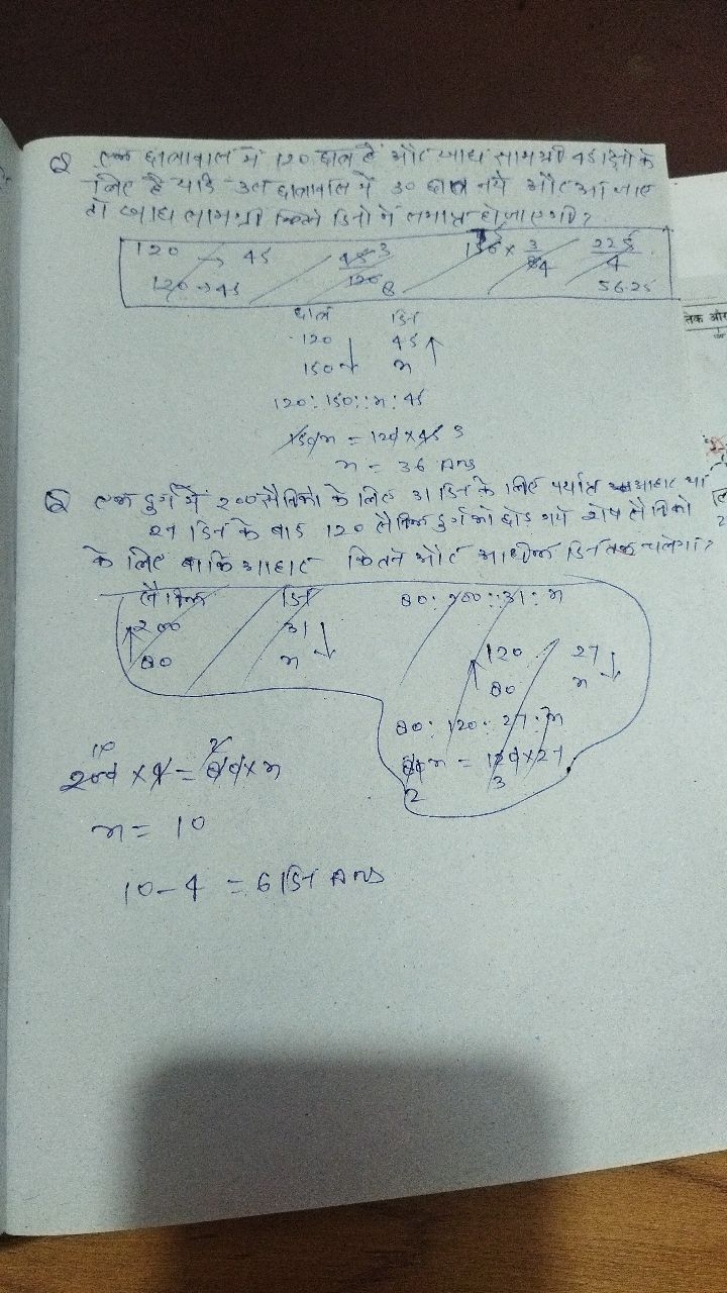 Q एक छात्रावास में 120 छात्र हैं और खाद्य सामग्री 45 दिनों के
लिए है यदि उस छात्रावास में 30 छात्र नये और आ जाए
तो खाद्य सामग्री कितने दिनों में समाप्त हो जाएगी?
120 → 45 45 3 150 × 3 225
120 → 45 120 8 84 4
56.25
छात्र दिन
120 45
150 x
120 : 150 :: x : 45
150x = 120 × 45 3
x = 36 Ans
Q एक दुर्ग में 200 सैनिकों के लिए 31 दिन के लिए पर्याप्त आहार था
27 दिन के बाद 120 सैनिक दुर्ग को छोड़ गये शेष सैनिकों
के लिए बाकि आहार कितने और अधिक दिन तक चलेगा?
सैनिक दिन 80 : 200 :: 31 : x
200 31
80 x
120 27
80 x
80 : 120 : 27 : x
80x = 120 × 27
2 3
10 2
200 × 4 = 80 × x
x = 10
10 - 4 = 6 दिन Ans
तक और